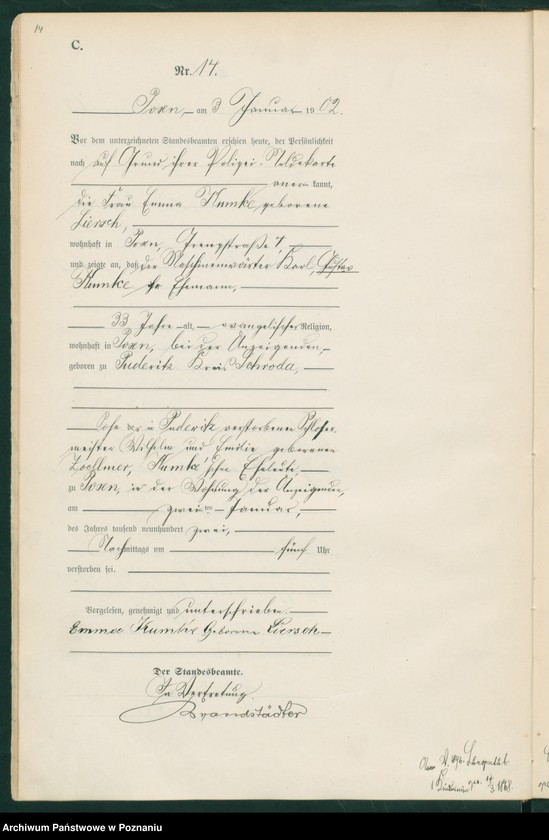 14
C.
Nr. 14.
Posen, am 3 Januar 1902.
Vor dem unterzeichneten Standesbeamten erschien heute, der Persönlichkeit
nach auf Grund ihrer Polizei-Meldekarte
anerkannt,
die Frau Emma Kumke geborene
Liersch,
wohnhaft in Posen, 4,
und zeigte an, daß der Maschinenwärter Karl, Gustav
Kumke ihr Ehemann,
33 Jahre alt, evangelischer Religion,
wohnhaft in Posen, bei der Anzeigenden,
geboren zu Pudewitz Kreis Schroda,
Sohn der in Pudewitz verstorbenen Schlosser
meister Wilhelm und Emilie geborenen
Zoellmer, Kumke'schen Eheleute,
zu Posen, in der Wohnung der Anzeigenden,
am zweiten Januar,
des Jahres tausend neunhundert zwei,
Nachmittags um fünf Uhr
verstorben sei.
Vorgelesen, genehmigt und unterschrieben.
Emma Kumke Geborene Liersch
Der Standesbeamte.
In Vertretung.
Brandstädter
14/3 1868.
Archiwum Państwowe w Poznaniu